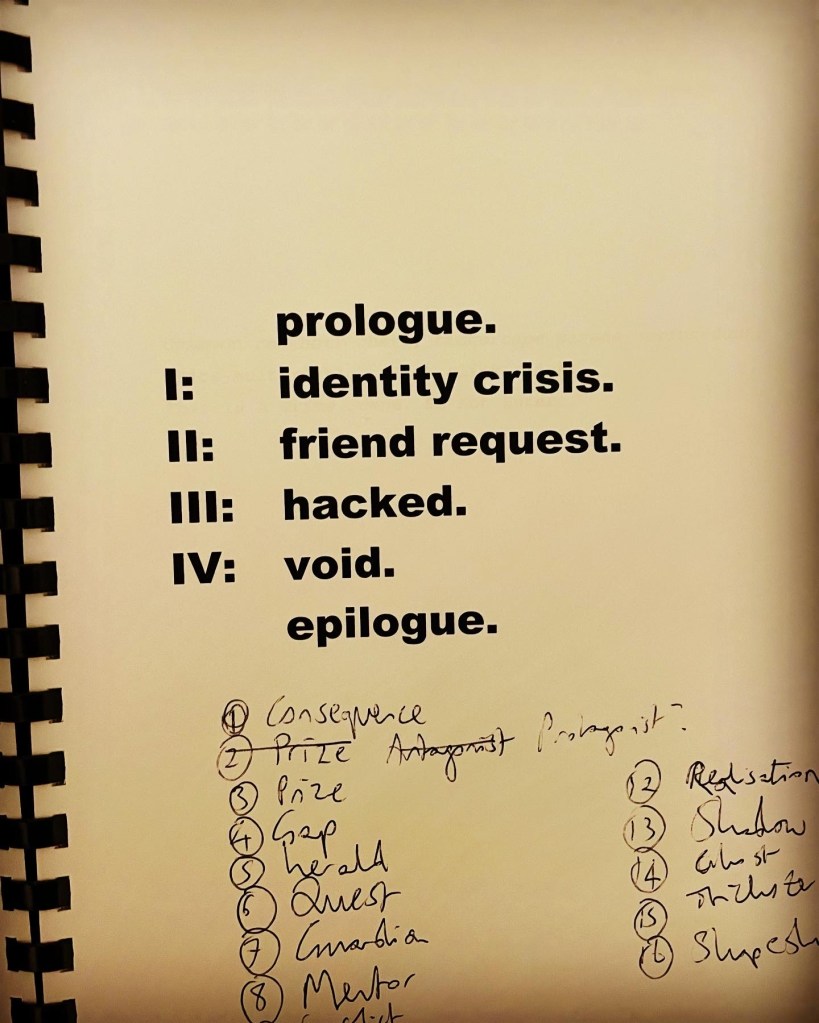 prologue.
I: identity crisis.
II: friend request.
III: hacked.
IV: void.
epilogue.
① Consequence
② Prize Antagonist Protagonist?
③ Prize
④ Gap
⑤ herald
⑥ Quest
⑦ Guardian
⑧ Mentor
⑫ Realisation
⑬ Shadow
⑭ Ghost
⑮
⑯ Shapesh